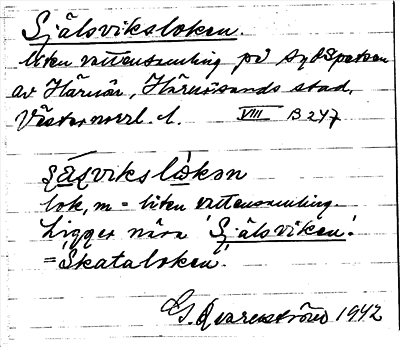 Själsviksloken.
liten vattensamling på sydspetsen
av Härnön, Härnösands stad,
Västernorrl. l. VIII B 247
lok, m = liten vattensamling.
Ligger nära 'Själsviken'.
= 'Skataloken'.
1942